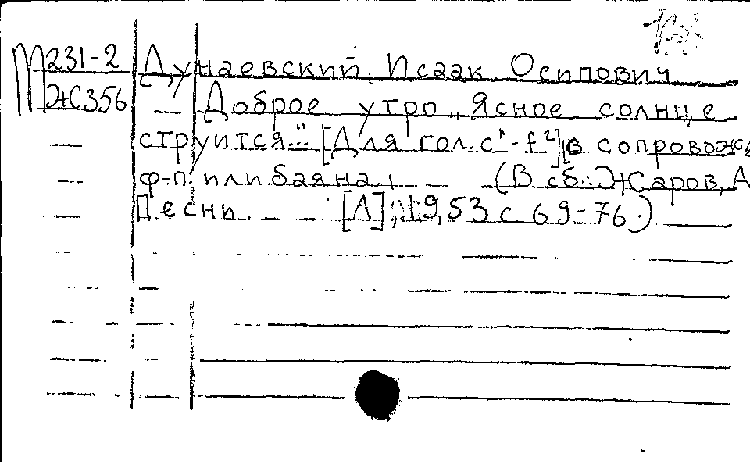 М231-2 Дунаевский Исаак Осипович
ЖС356 Доброе утро „Ясное солнце
струится..." [Для гол. с¹-f²] в сопровожд
ф-п. или баяна. (В сб.: Жаров, А
Песни. [Л], 1953 с 69-76.)